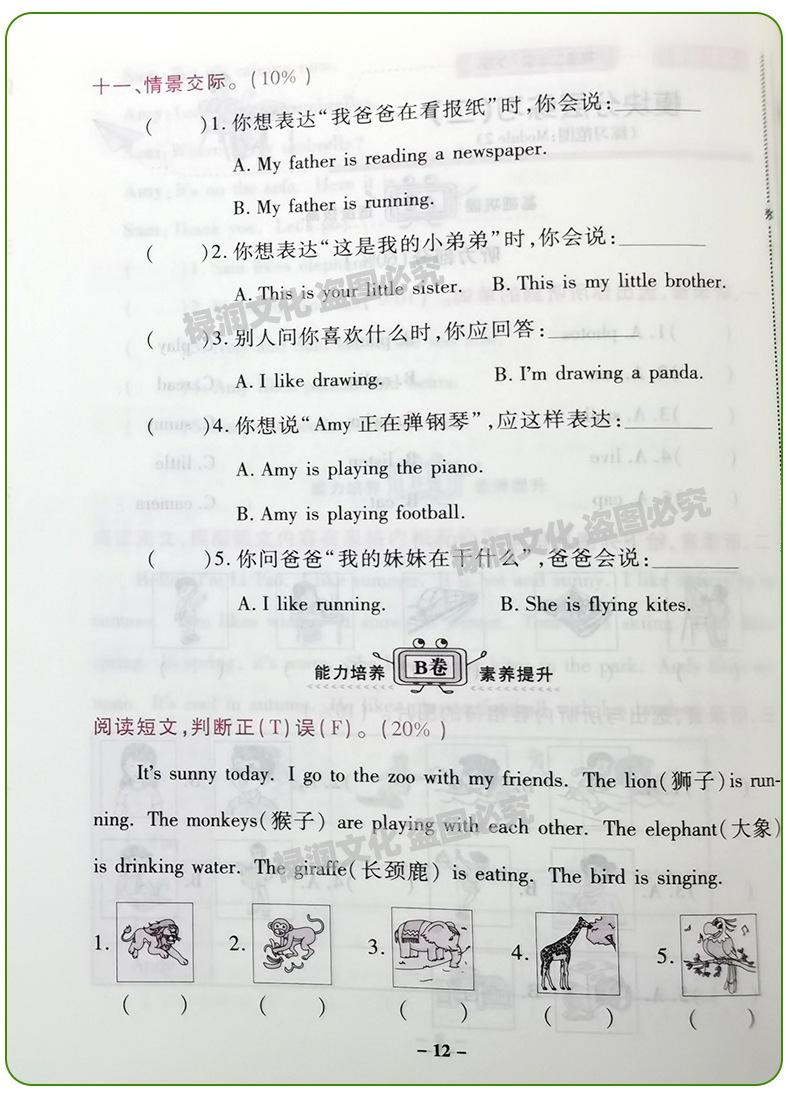 十一、情景交际。(10%)
(    )1. 你想表达“我爸爸在看报纸”时,你会说:________
A. My father is reading a newspaper.
B. My father is running.
(    )2. 你想表达“这是我的小弟弟”时,你会说:________
A. This is your little sister.    B. This is my little brother.
(    )3. 别人问你喜欢什么时,你应回答:________
A. I like drawing.    B. I'm drawing a panda.
(    )4. 你想说“Amy 正在弹钢琴”,应这样表达:________
A. Amy is playing the piano.
B. Amy is playing football.
(    )5. 你问爸爸“我的妹妹在干什么”,爸爸会说:________
A. I like running.    B. She is flying kites.
能力培养 B卷 素养提升
阅读短文,判断正(T)误(F)。(20%)
It's sunny today. I go to the zoo with my friends. The lion(狮子)is run-
ning. The monkeys(猴子) are playing with each other. The elephant(大象)
is drinking water. The giraffe(长颈鹿) is eating. The bird is singing.
1.    2.    3.    4.    5.
(    )    (    )    (    )    (    )    (    )
- 12 -
禄润文化 盗图必究
禄润文化 盗图必究
禄润文化 盗图必究